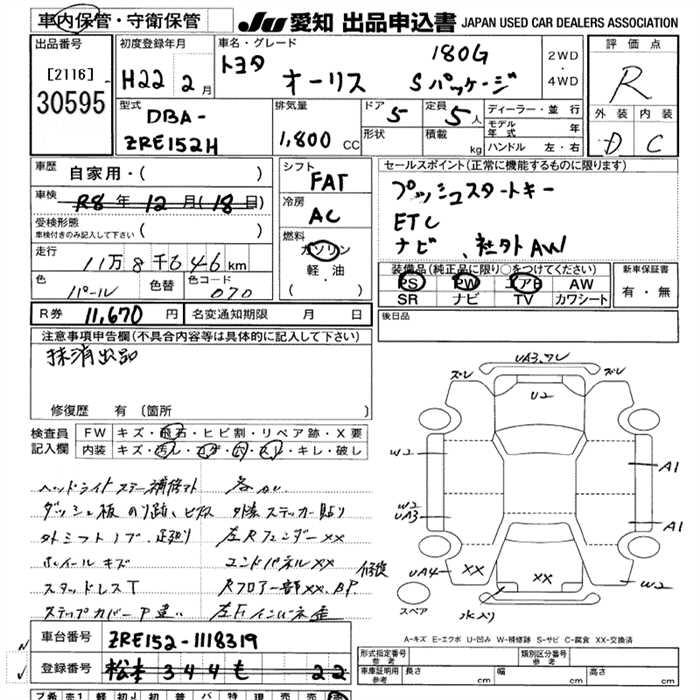 車内保管・守衛保管
JU 愛知 出品申込書 JAPAN USED CAR DEALERS ASSOCIATION
出品番号
[2116]
30595
初度登録年月
H22 2月
車名・グレード
トヨタ オーリス 180G Sパッケージ
2WD・4WD
評価点
R
外装 内装
D C
型式
DBA-
ZRE152H
排気量
1,800 CC
ドア 5
形状
定員 5人
積載 kg
ディーラー・並行
モデル年式 年
ハンドル 左・右
車歴 自家用・( )
車検 R8年12月(18日)
受検形態
車検付きのみ記入して下さい ( )
走行
11万8千646km
色 パール
色替
色コード 070
シフト
FAT
冷房
AC
燃料
ガソリン
軽・油
( ・ )
セールスポイント(正常に機能するものに限ります)
プッシュスタートキー
ETC
ナビ、社外AW
装備品(純正品に限り○をつけてください)
PS PW エアB AW
SR ナビ TV カワシート
新車保証書
有・無
R券 11,670円
名変通知期限 月 日
後日品
注意事項申告欄(不具合内容等は具体的に記入して下さい)
抹消出品
修復歴 有(箇所 )
検査員記入欄
FW キズ・飛石・ヒビ割・リペア跡・X要
内装 キズ・汚し・コゲ・穴・スレ・キレ・破し
ヘッドライトステー補修キト 各カレ
ダッシュ板のり跡、ビス穴 外装ステッカー貼り
外シフトノブ、足廻り 左Rフェンダーxx
ホイールキズ エンドパネルxx 修復
スタッドレスT Rフロア一部xx、BP
ステップカバーP違い 左Fインパネ歪
ズレ UA3、ワレ ズレ
U2
W2
A1
W2
UA3
A1
UA4 XX XX W2
スペア
水入り
A-キズ E-エクボ U-凹み W-補修跡 S-サビ C-腐食 XX-交換済
車台番号 ZRE152-1118319
登録番号 松本 344 も 22
形式指定番号
参考
類別区分番号
参考
車庫証明用
参考
長さ cm 幅 cm 高さ cm